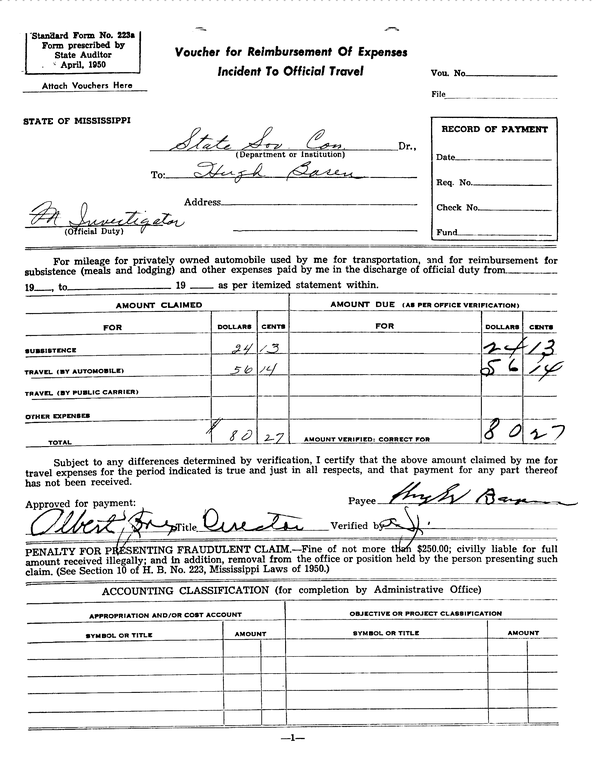 Standard Form No. 223a
Form prescribed by
State Auditor
April, 1950
Attach Vouchers Here
Voucher for Reimbursement Of Expenses
Incident To Official Travel
Vou. No.
File
STATE OF MISSISSIPPI
State Sov. Com. Dr.,
(Department or Institution)
To: Hugh Boren
Address
Investigator
(Official Duty)
RECORD OF PAYMENT
Date
Req. No.
Check No.
Fund
For mileage for privately owned automobile used by me for transportation, and for reimbursement for
subsistence (meals and lodging) and other expenses paid by me in the discharge of official duty from
19 , to 19 as per itemized statement within.
AMOUNT CLAIMED AMOUNT DUE (AS PER OFFICE VERIFICATION)
FOR DOLLARS CENTS FOR DOLLARS CENTS
SUBSISTENCE 24 13 24 13
TRAVEL (BY AUTOMOBILE) 56 14 56 14
TRAVEL (BY PUBLIC CARRIER)
OTHER EXPENSES
TOTAL $ 80 27 AMOUNT VERIFIED: CORRECT FOR 80 27
Subject to any differences determined by verification, I certify that the above amount claimed by me for
travel expenses for the period indicated is true and just in all respects, and that payment for any part thereof
has not been received.
Approved for payment: Payee Hugh Boren
Albert Title Director Verified by
PENALTY FOR PRESENTING FRAUDULENT CLAIM.—Fine of not more than $250.00; civilly liable for full
amount received illegally; and in addition, removal from the office or position held by the person presenting such
claim. (See Section 10 of H. B. No. 223, Mississippi Laws of 1950.)
ACCOUNTING CLASSIFICATION (for completion by Administrative Office)
APPROPRIATION AND/OR COST ACCOUNT OBJECTIVE OR PROJECT CLASSIFICATION
SYMBOL OR TITLE AMOUNT SYMBOL OR TITLE AMOUNT
—1—